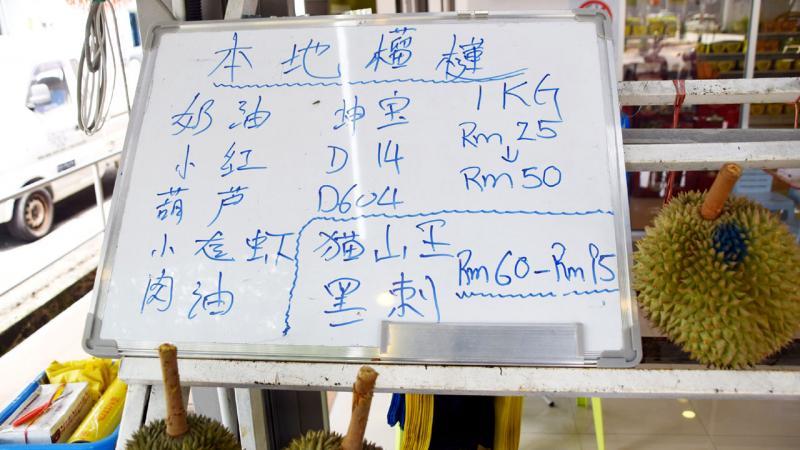 本地榴槤
奶油 坤宝 1KG
小红 D14 Rm 25
葫芦 D604 Rm 50
小 虾 猫山王 Rm60-Rm95
肉油 黑刺